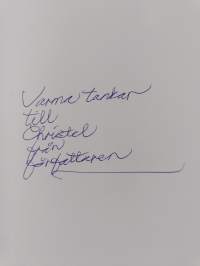 Varma tankar
till
Christel
från
författaren